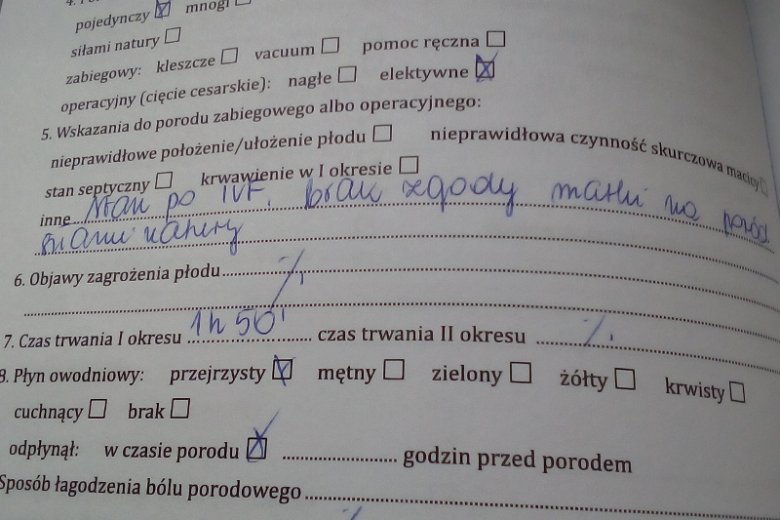 4. P
pojedynczy ☒ mnogi ☐
siłami natury ☐
zabiegowy: kleszcze ☐ vacuum ☐ pomoc ręczna ☐
operacyjny (cięcie cesarskie): nagłe ☐ elektywne ☒
5. Wskazania do porodu zabiegowego albo operacyjnego:
nieprawidłowe położenie/ułożenie płodu ☐ nieprawidłowa czynność skurczowa macicy ☐
stan septyczny ☐ krwawienie w I okresie ☐
inne Stan po IVF, brak zgody matki na poród
siłami natury
6. Objawy zagrożenia płodu
7. Czas trwania I okresu 1h 50' czas trwania II okresu
8. Płyn owodniowy: przejrzysty ☒ mętny ☐ zielony ☐ żółty ☐ krwisty ☐
cuchnący ☐ brak ☐
odpłynął: w czasie porodu ☒ godzin przed porodem
Sposób łagodzenia bólu porodowego